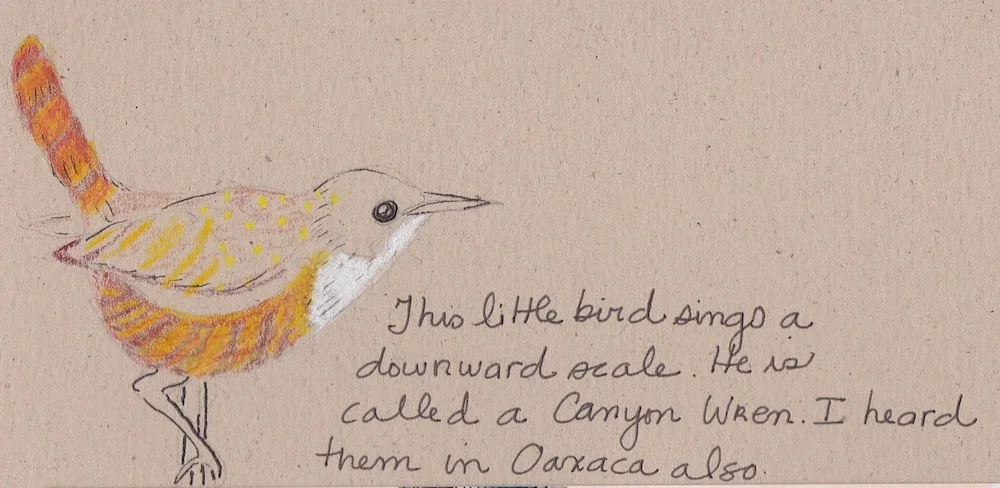 This little bird sings a
downward scale. He is
called a Canyon Wren. I heard
them in Oaxaca also.